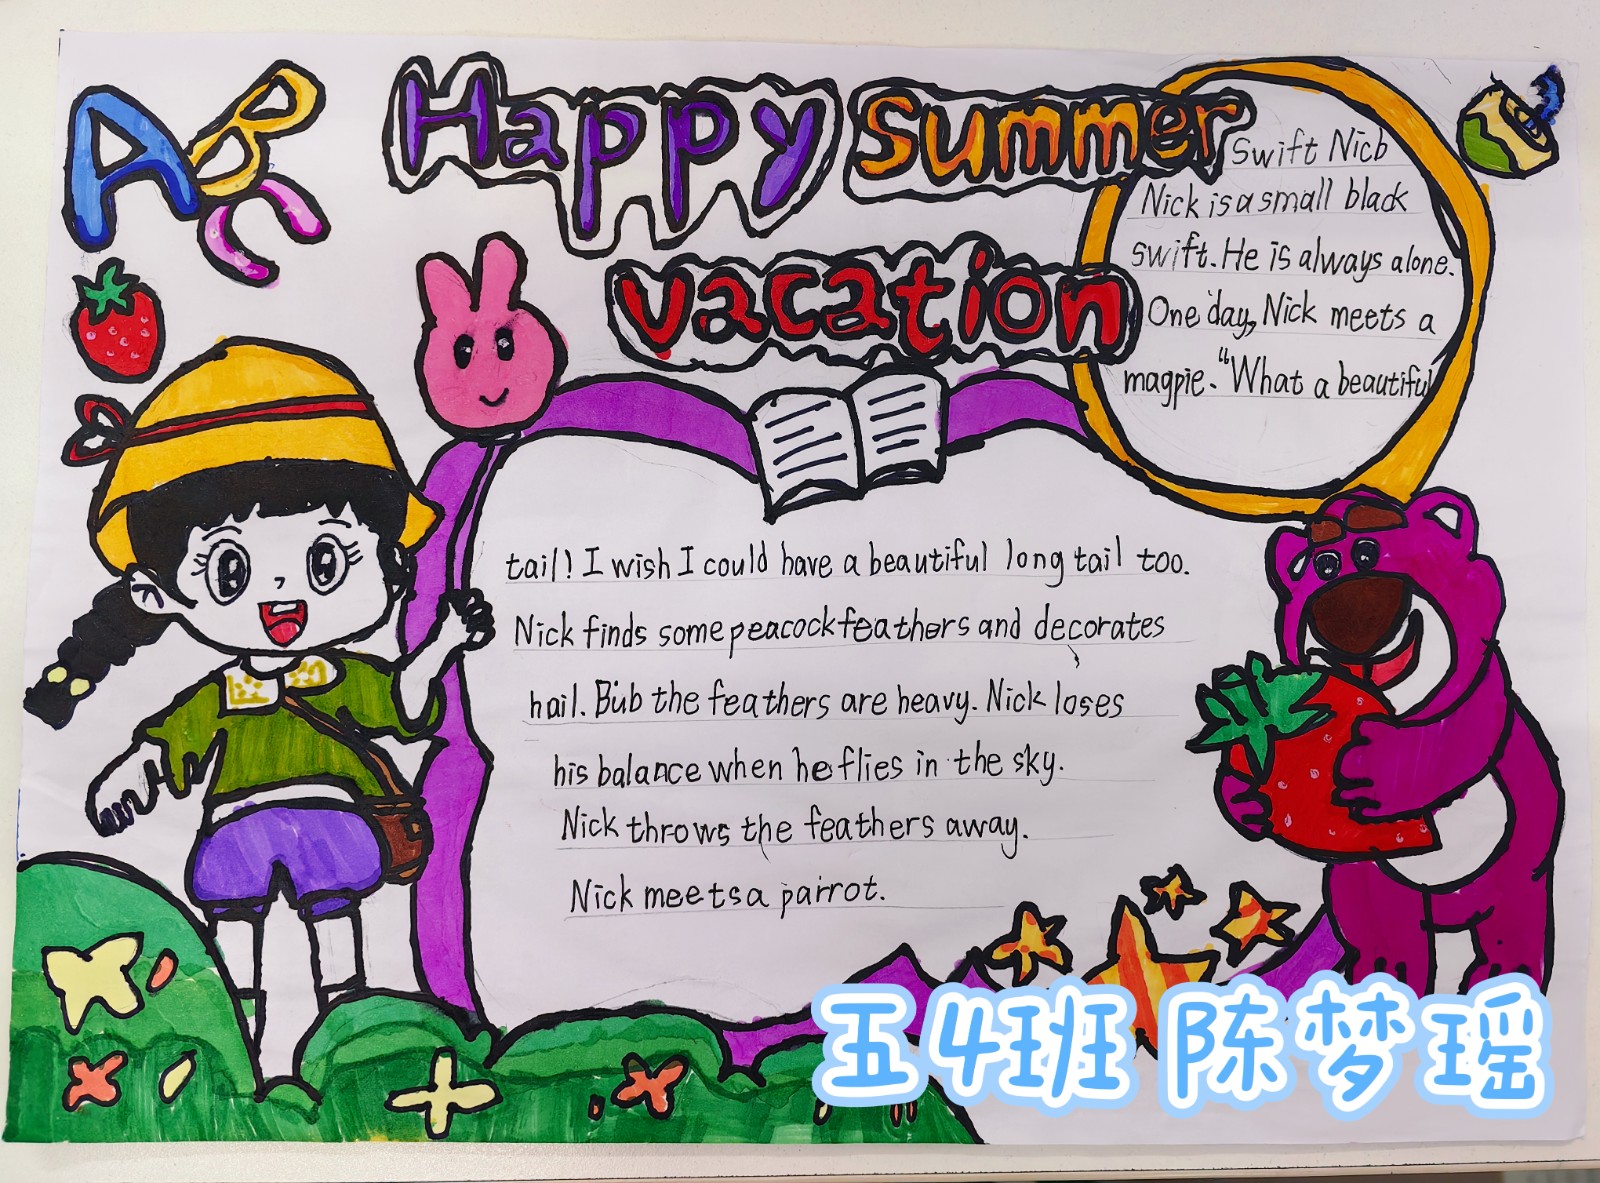 ABC
Happy summer
vacation
Swift Nicb
Nick is a small black
swift. He is always alone.
One day, Nick meets a
magpie. "What a beautiful
tail! I wish I could have a beautiful long tail too.
Nick finds some peacock feathers and decorates
hail. Bub the feathers are heavy. Nick loses
his balance when he flies in the sky.
Nick throws the feathers away.
Nick meets a parrot.
五4班 陈梦瑶